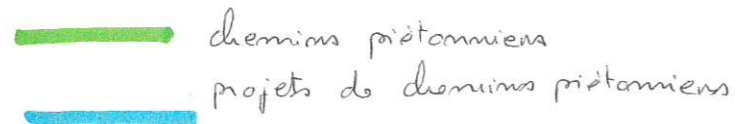 chemins piétonniens
projets de chemins piétonniens